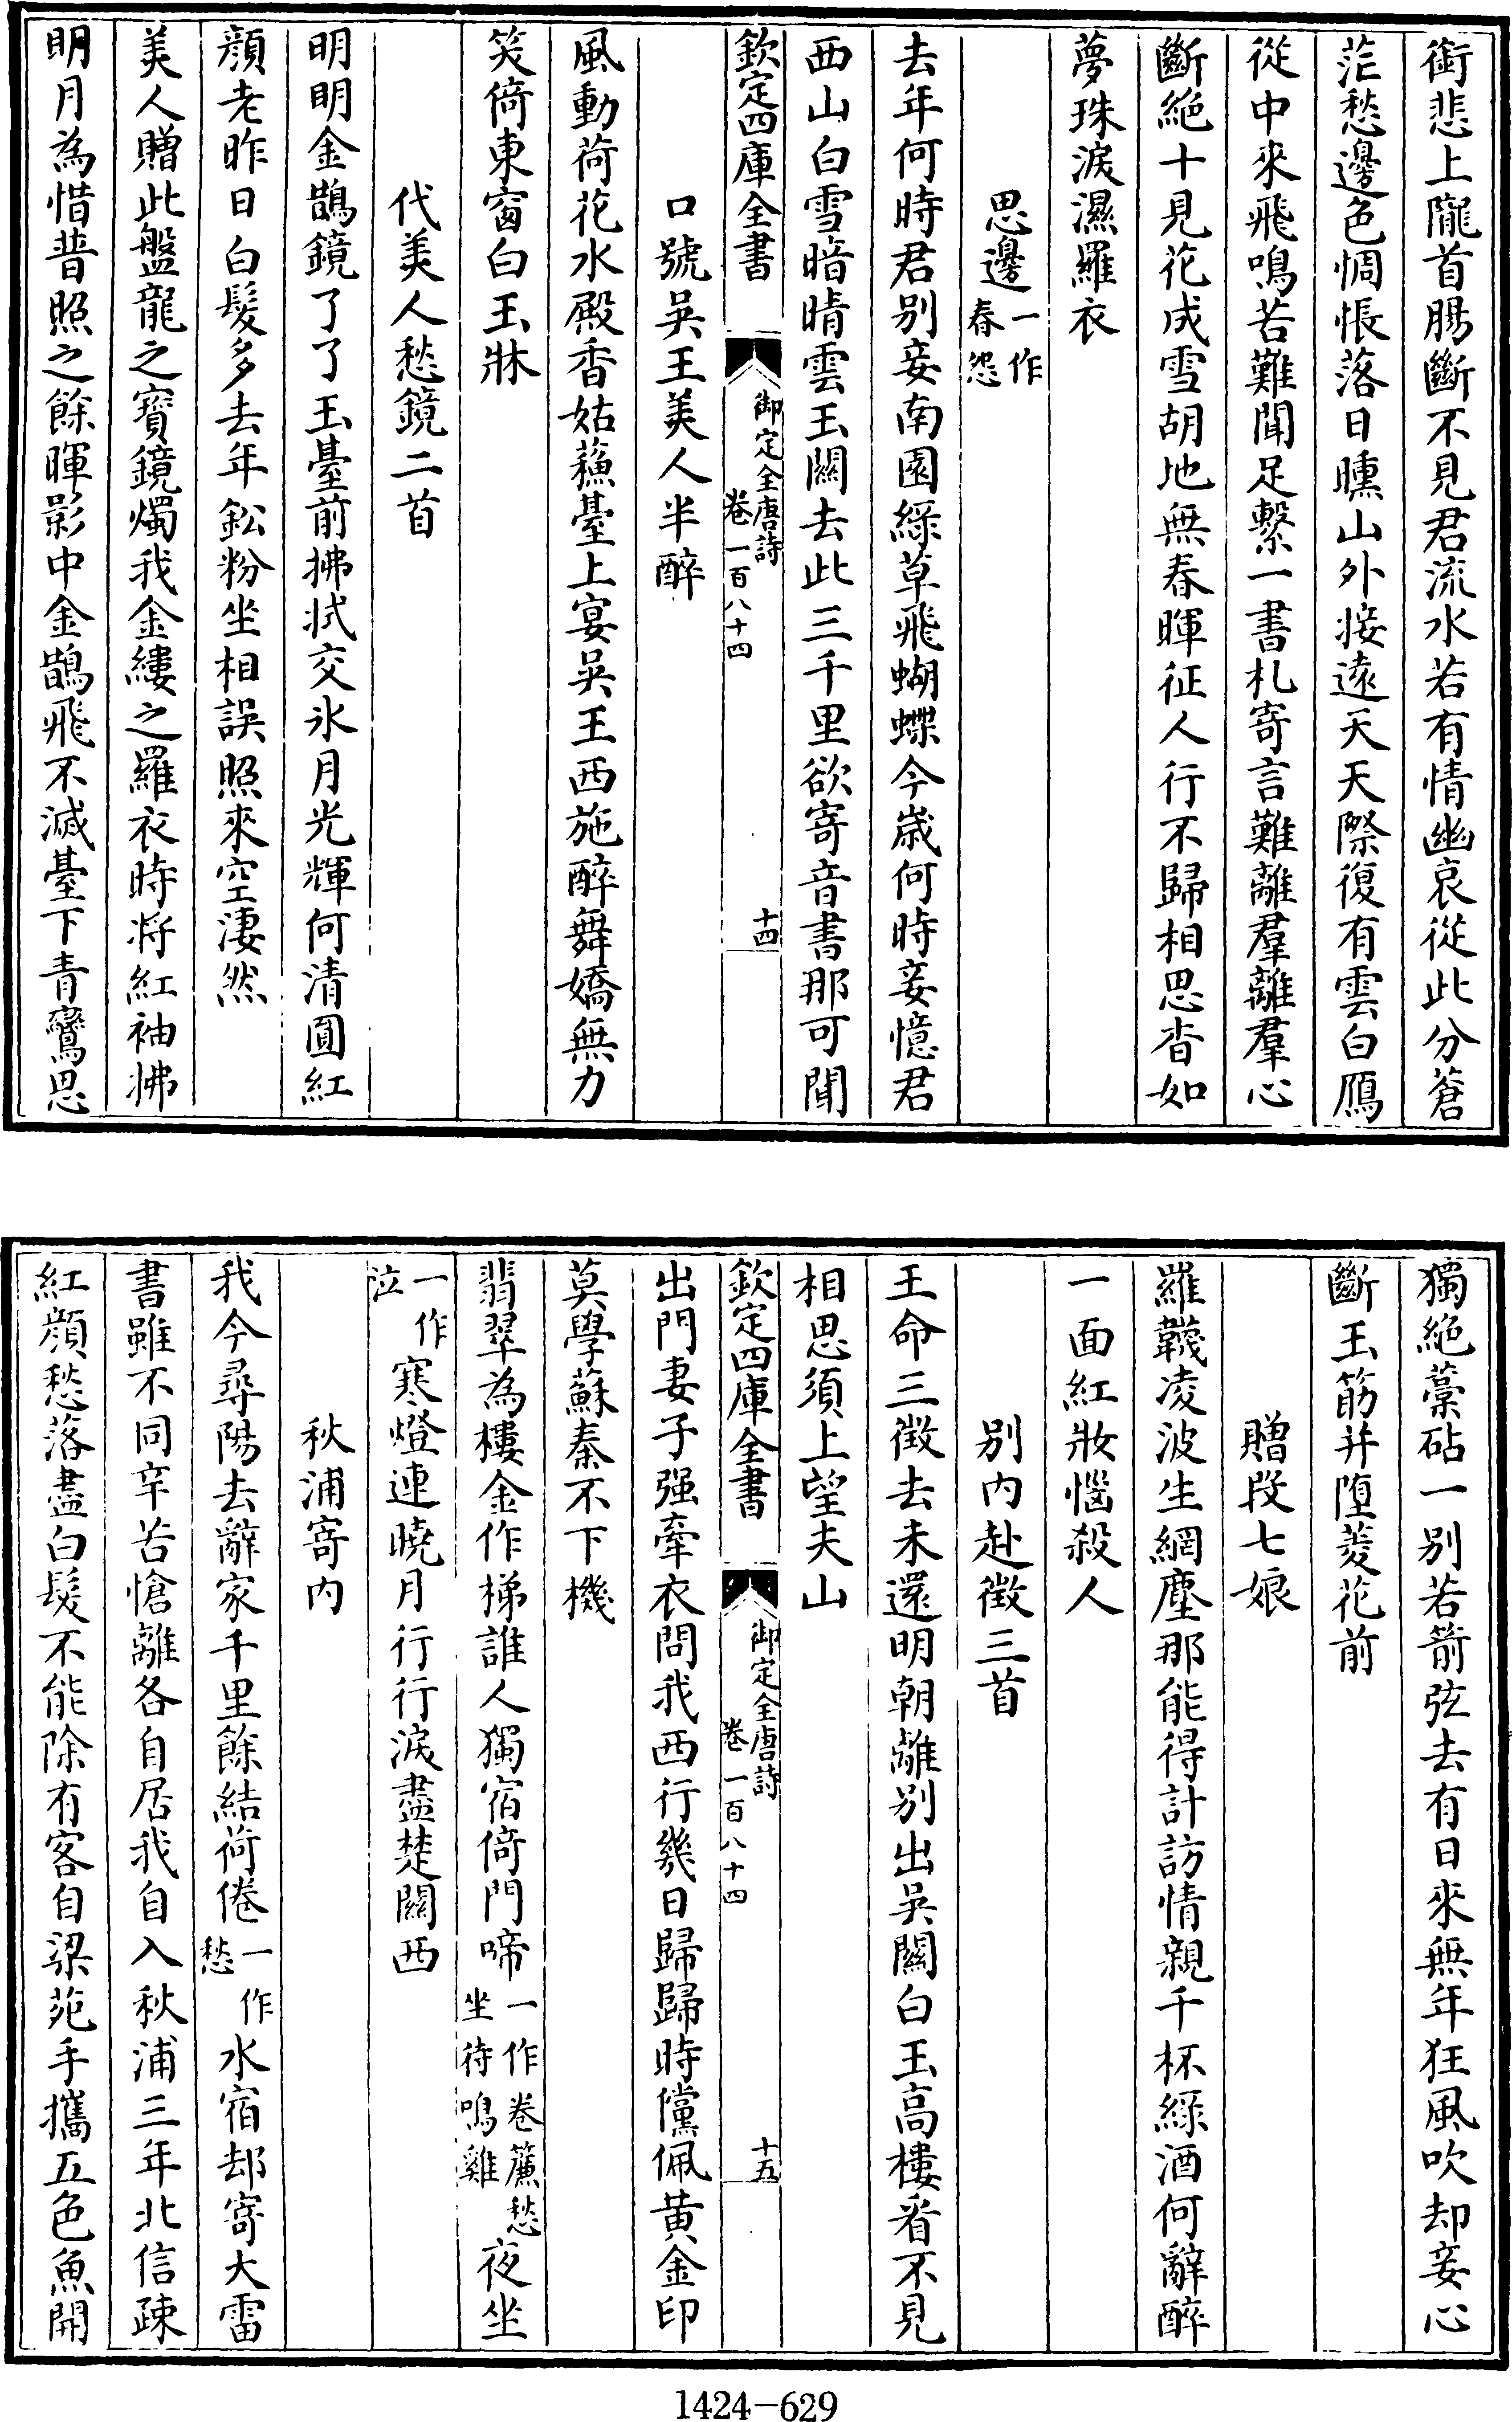 銜悲上隴首腸斷不見君流水若有情幽哀從此分蒼
茫愁邊色惆悵落日曛山外接遠天天際復有雲白鴈
從中來飛鳴苦難聞足繫一書札寄言難離羣離羣心
斷絕十見花成雪胡地無春暉征人行不歸相思杳如
夢珠淚濕羅衣
思邊一作春怨
去年何時君别妾南園綠草飛蝴蝶今歲何時妾憶君
西山白雪暗晴雲玉關去此三千里欲寄音書那可聞
欽定四庫全書 御定全唐詩卷一百八十四 十四
口號吳王美人半醉
風動荷花水殿香姑蘓臺上宴吳王西施醉舞嬌無力
笑倚東窗白玉牀
代美人愁鏡二首
明明金鵲鏡了了玉臺前拂拭交氷月光輝何清圓紅
顔老昨日白髮多去年鈆粉坐相誤照來空淒然
美人贈此盤龍之寶鏡燭我金縷之羅衣時將紅袖拂
明月為惜普照之餘暉影中金鵲飛不滅臺下青鸞思
獨絕藁砧一别若箭弦去有日來無年狂風吹却妾心
斷玉筯并墮菱花前
贈段七娘
羅韈凌波生網塵那能得計訪情親千杯綠酒何辭醉
一面紅妝惱殺人
别内赴徵三首
王命三徵去未還明朝離别出吳關白玉高樓看不見
相思須上望夫山
欽定四庫全書 御定全唐詩卷一百八十四 十五
出門妻子强牽衣問我西行幾日歸歸時儻佩黄金印
莫學蘇秦不下機
翡翠為樓金作梯誰人獨宿倚門啼一作卷簾愁坐待鳴雞夜坐
一作泣寒燈連曉月行行淚盡楚關西
秋浦寄内
我今尋陽去辭家千里餘結荷倦一作愁水宿却寄大雷
書雖不同辛苦愴離各自居我自入秋浦三年北信疎
紅顔愁落盡白髮不能除有客自梁苑手攜五色魚開
1424-629